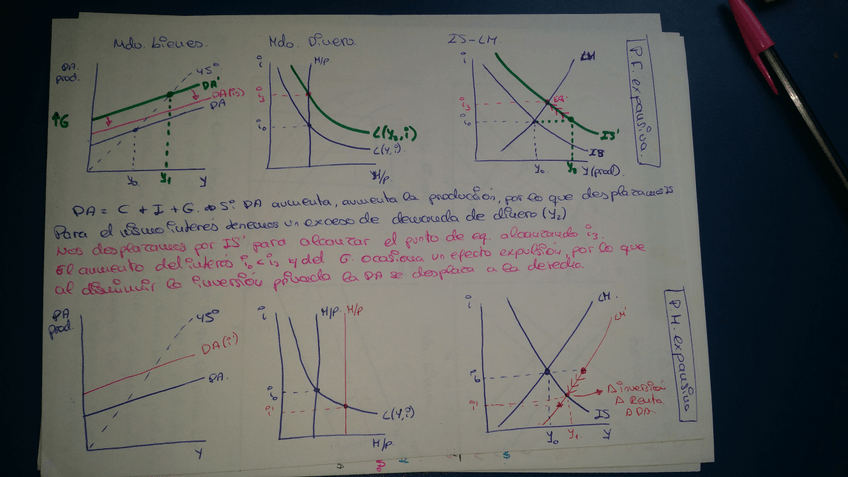 Mdo. bienes.
Mdo. Dinero
IS-LM
DA.
prod.
45º
DA'
DA(i3)
DA
↑G
y0
y1
y
i
M/p
i3
i0
L(y2,i)
L(y,i)
M/p
i
LM
i3
i0
IS'
IS
y0
y2
y(prod)
P.F. expansiva.
DA = C + I + G. Si DA aumenta, aumenta la producción, por lo que desplazamos IS
Para el mismo interés tenemos un exceso de demanda de dinero (y2)
Nos desplazamos por IS' para alcanzar el punto de eq. alcanzando i3.
El aumento del interés i0 < i3 y del G. ocasiona un efecto expulsión, por lo que
al disminuir la inversión privada la DA se desplaza a la derecha.
DA
prod.
45º
DA(i')
DA.
y
i
M/p
M/p
i0
i1
L(y,i)
M/p
i
LM.
LM'
i0
i1
Δ inversión
Δ Renta
Δ DA
IS
y0
y1
y
P.M. expansiva